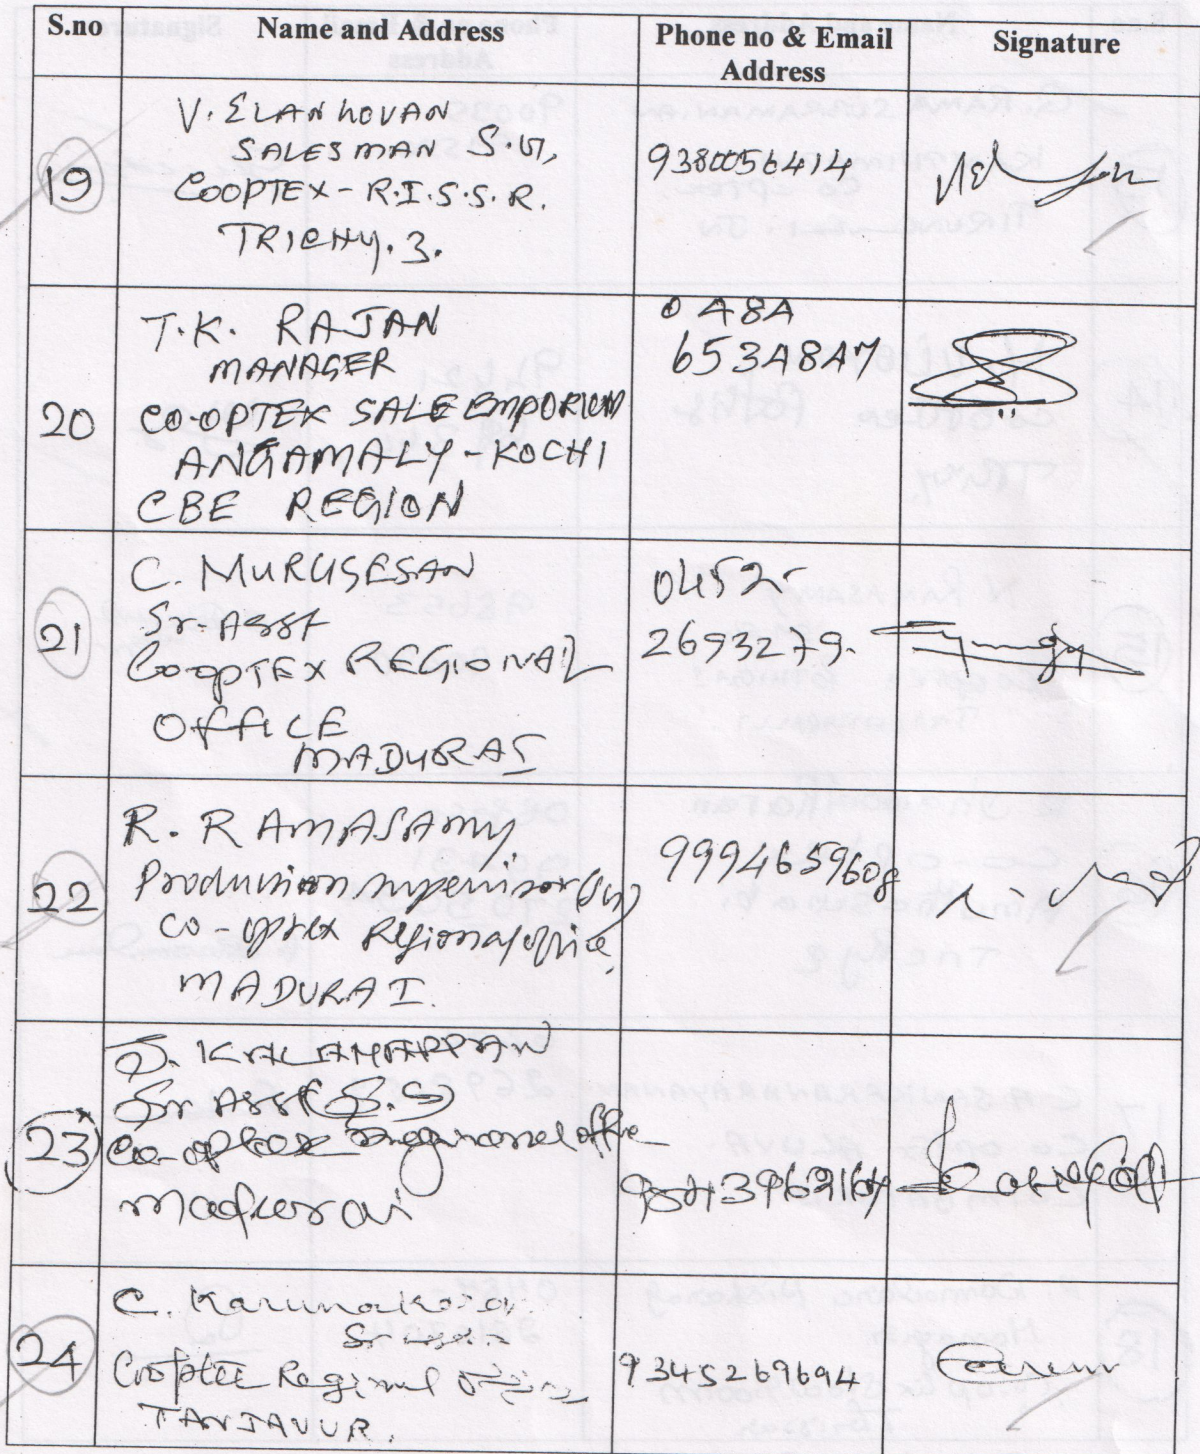 S.no Name and Address Phone no & Email Address Signature
19
V. ELANKOVAN
SALESMAN S.G,
COOPTEX - R.I.S.S.R.
TRICHY. 3.
9380056414
20
T.K. RAJAN
MANAGER
CO-OPTEX SALE EMPORIUM
ANGAMALY - KOCHI
CBE REGION
0484
6534847
21
C. MURUGESAN
Sr. Asst
Cooptex REGIONAL
OFFICE
MADURAI
0452-
2693279.
22
R. RAMASAMY
Production supervisor
Co-optex Regional office,
MADURAI.
9994659608
23
KALANAPPAN
Sr Asst (S.S)
Co-optex Regional office
Madurai
24
C. Karunakaran
Cooptex Regional office
TANJAVUR.
9345269694